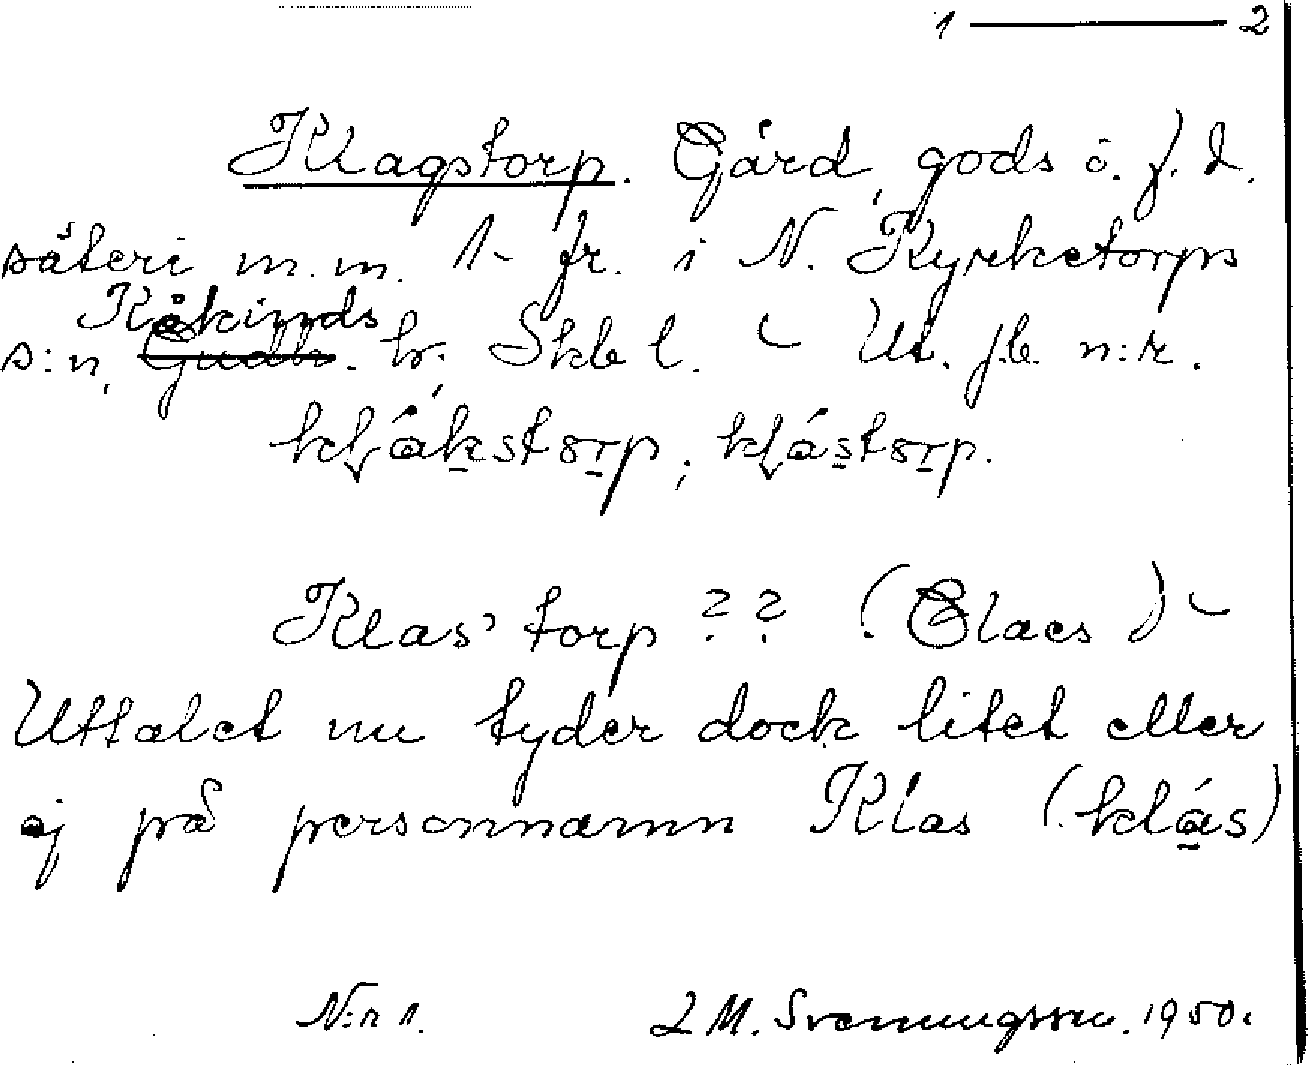 1 — 2
Klagstorp. Gård, gods o. f. d.
säteri m. m. 1 fr. i N. Kyrketorps
Kåkinds
s:n, Gudh. h. Skb l. – Ut. jb n:r.
kḷákstorp, kḷástorp.
Klas' torp ?? (Claes) –
Uttalet nu tyder dock litet eller
ej på personnamn Klas (klás)
N:r 1. L M. Svenningsson. 1950.